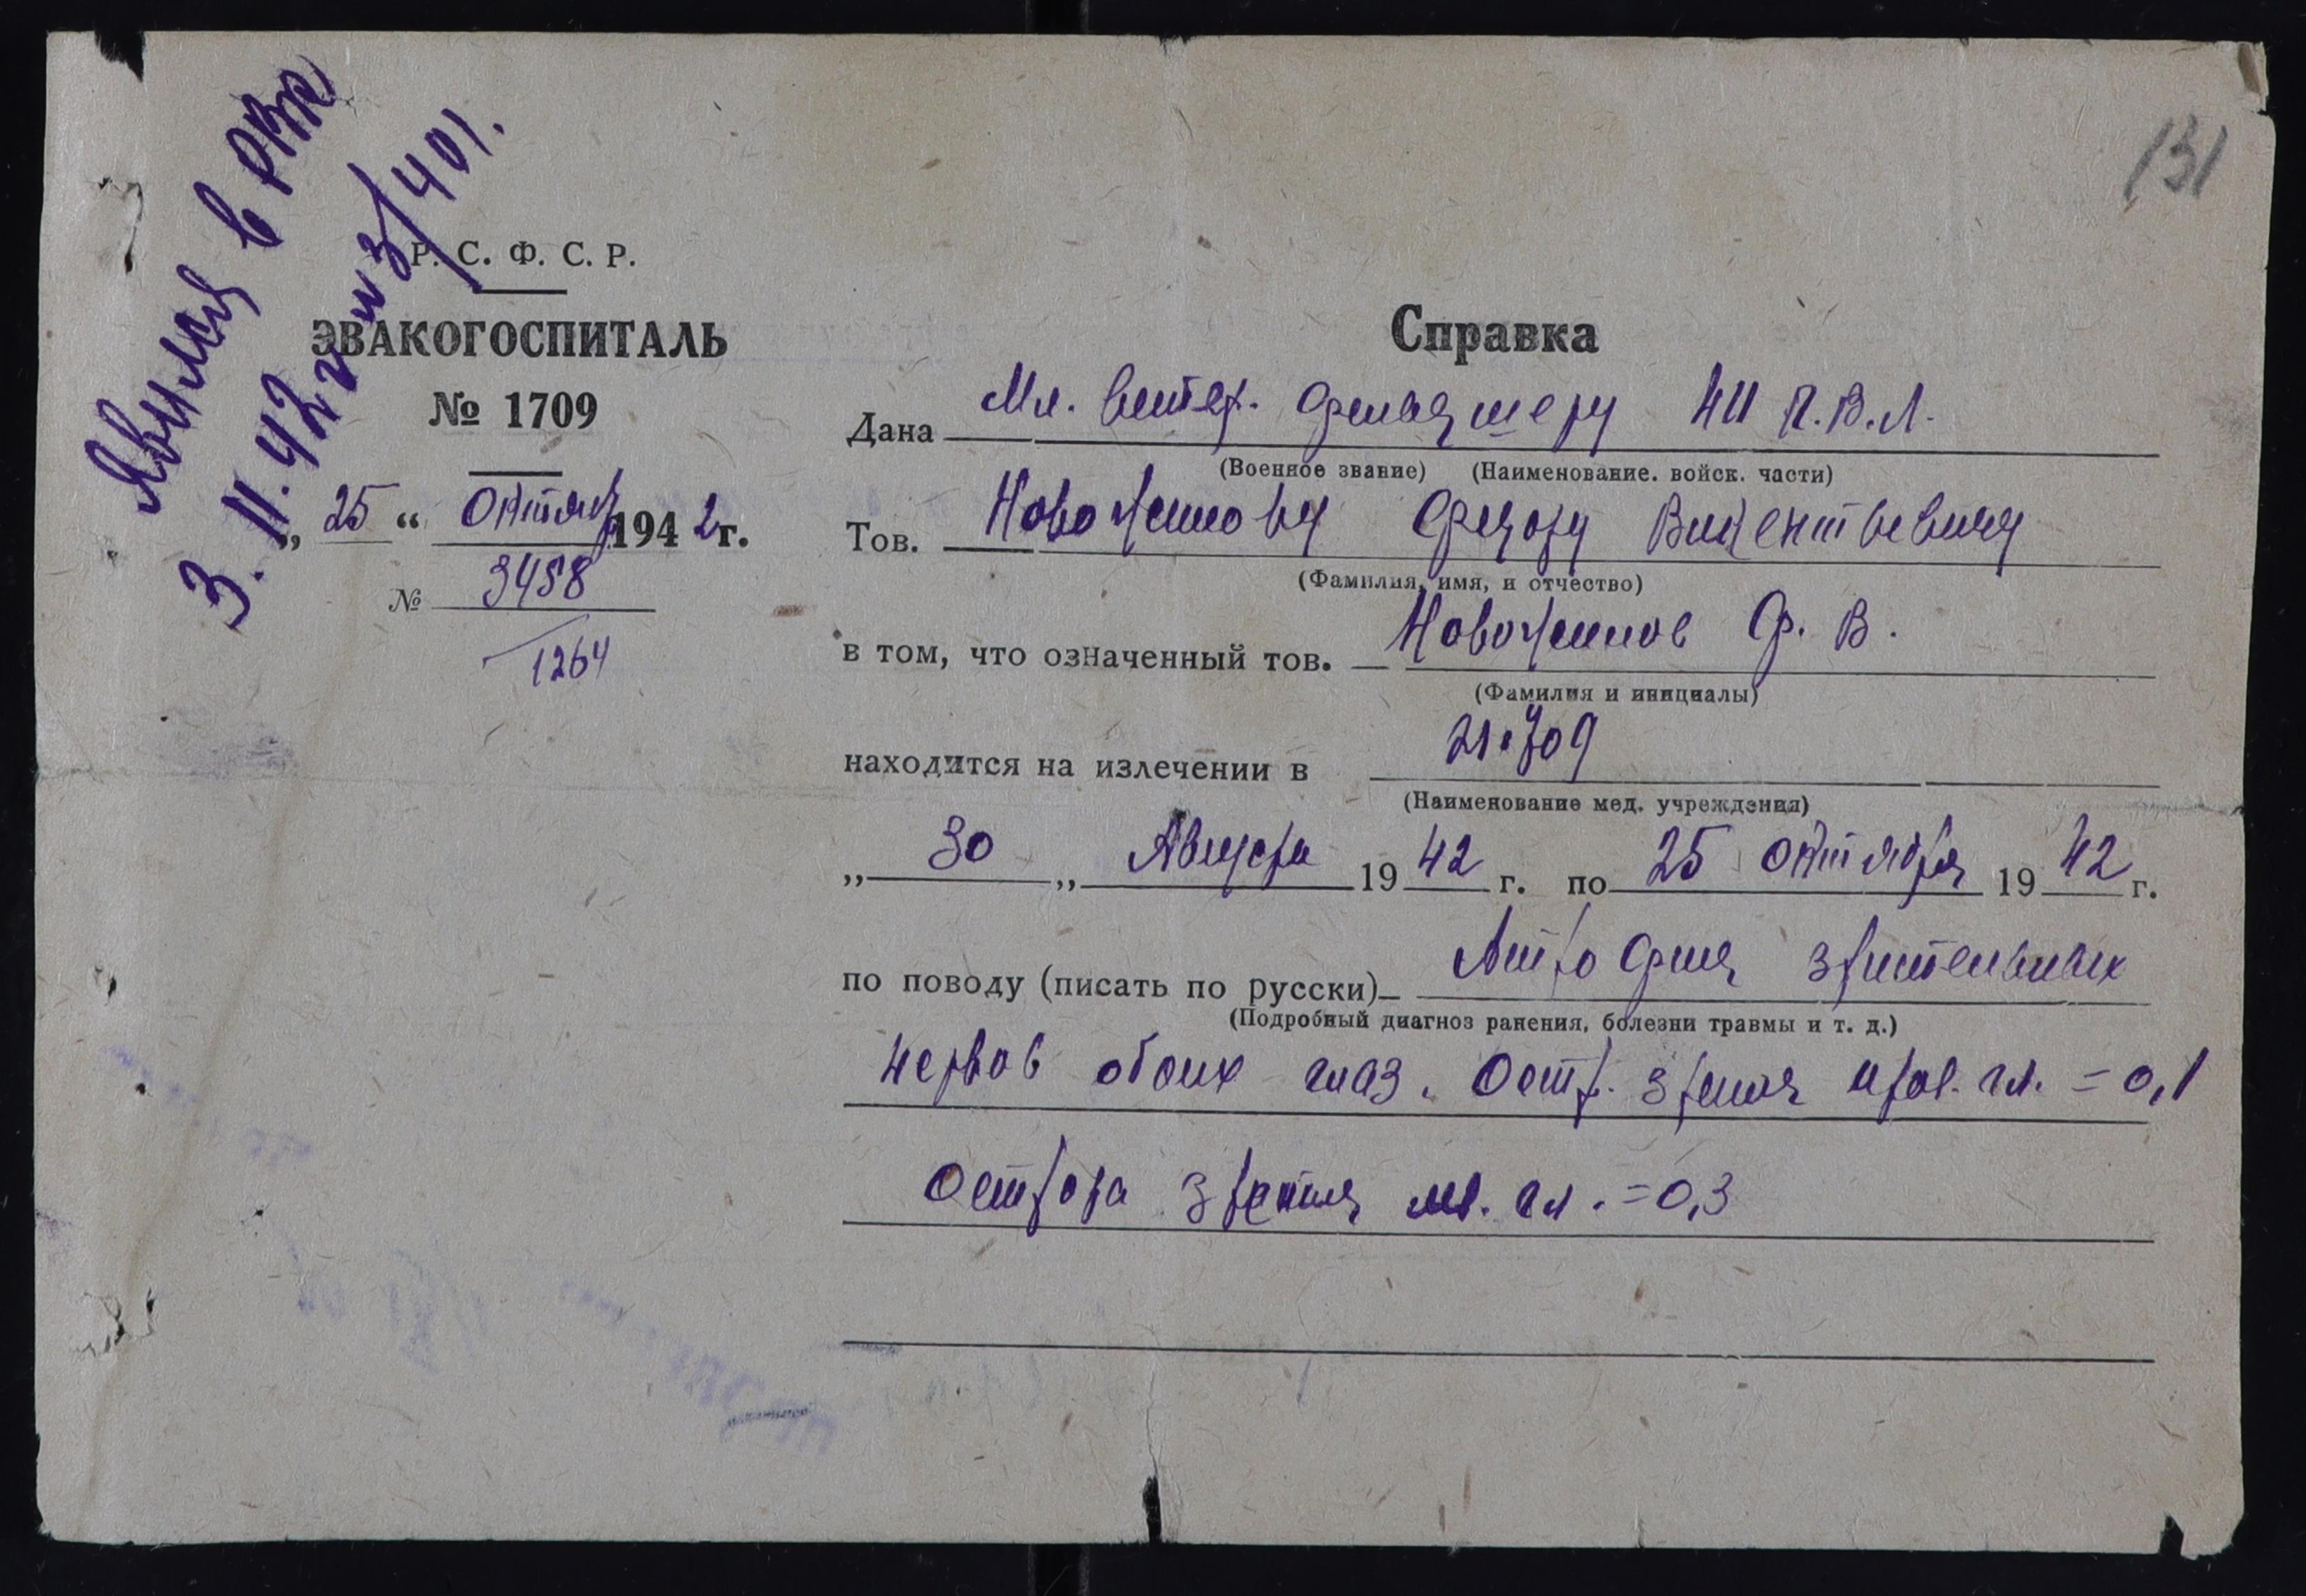 131
Явился в РВК
3.11.42 г. из 3/401.
Р. С. Ф. С. Р.
ЭВАКОГОСПИТАЛЬ
№ 1709
„ 25 “ Октяб 194 2 г.
№ 3458
1264
Справка
Дана Мл. Ветер. Фельдшеру 411 П.В.Л.
(Военное звание) (Наименование. войск. части)
Тов. Федору Викентьевичу
(Фамилия, имя, и отчество)
в том, что означенный тов. Ф. В.
(Фамилия и инициалы)
находится на излечении в
(Наименование мед. учреждения)
„ 30 „ Августа 19 42 г. по 25 октября 19 42 г.
по поводу (писать по русски) Атрофия зрительных
(Подробный диагноз ранения, болезни травмы и т. д.)
нервов обоих глаз. Остр. зрения прав. гл. = 0,1
Острота зрения лев. гл. = 0,3